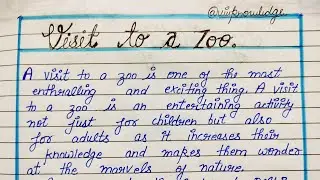 @viiknowledge_
Visit to a Zoo.
A visit to a zoo is one of the most
enthralling and exciting thing. A visit
to a zoo is an entertaining activity
not just for children but also
for adults as it increases their
knowledge and makes them wonder
at the marvels of nature.